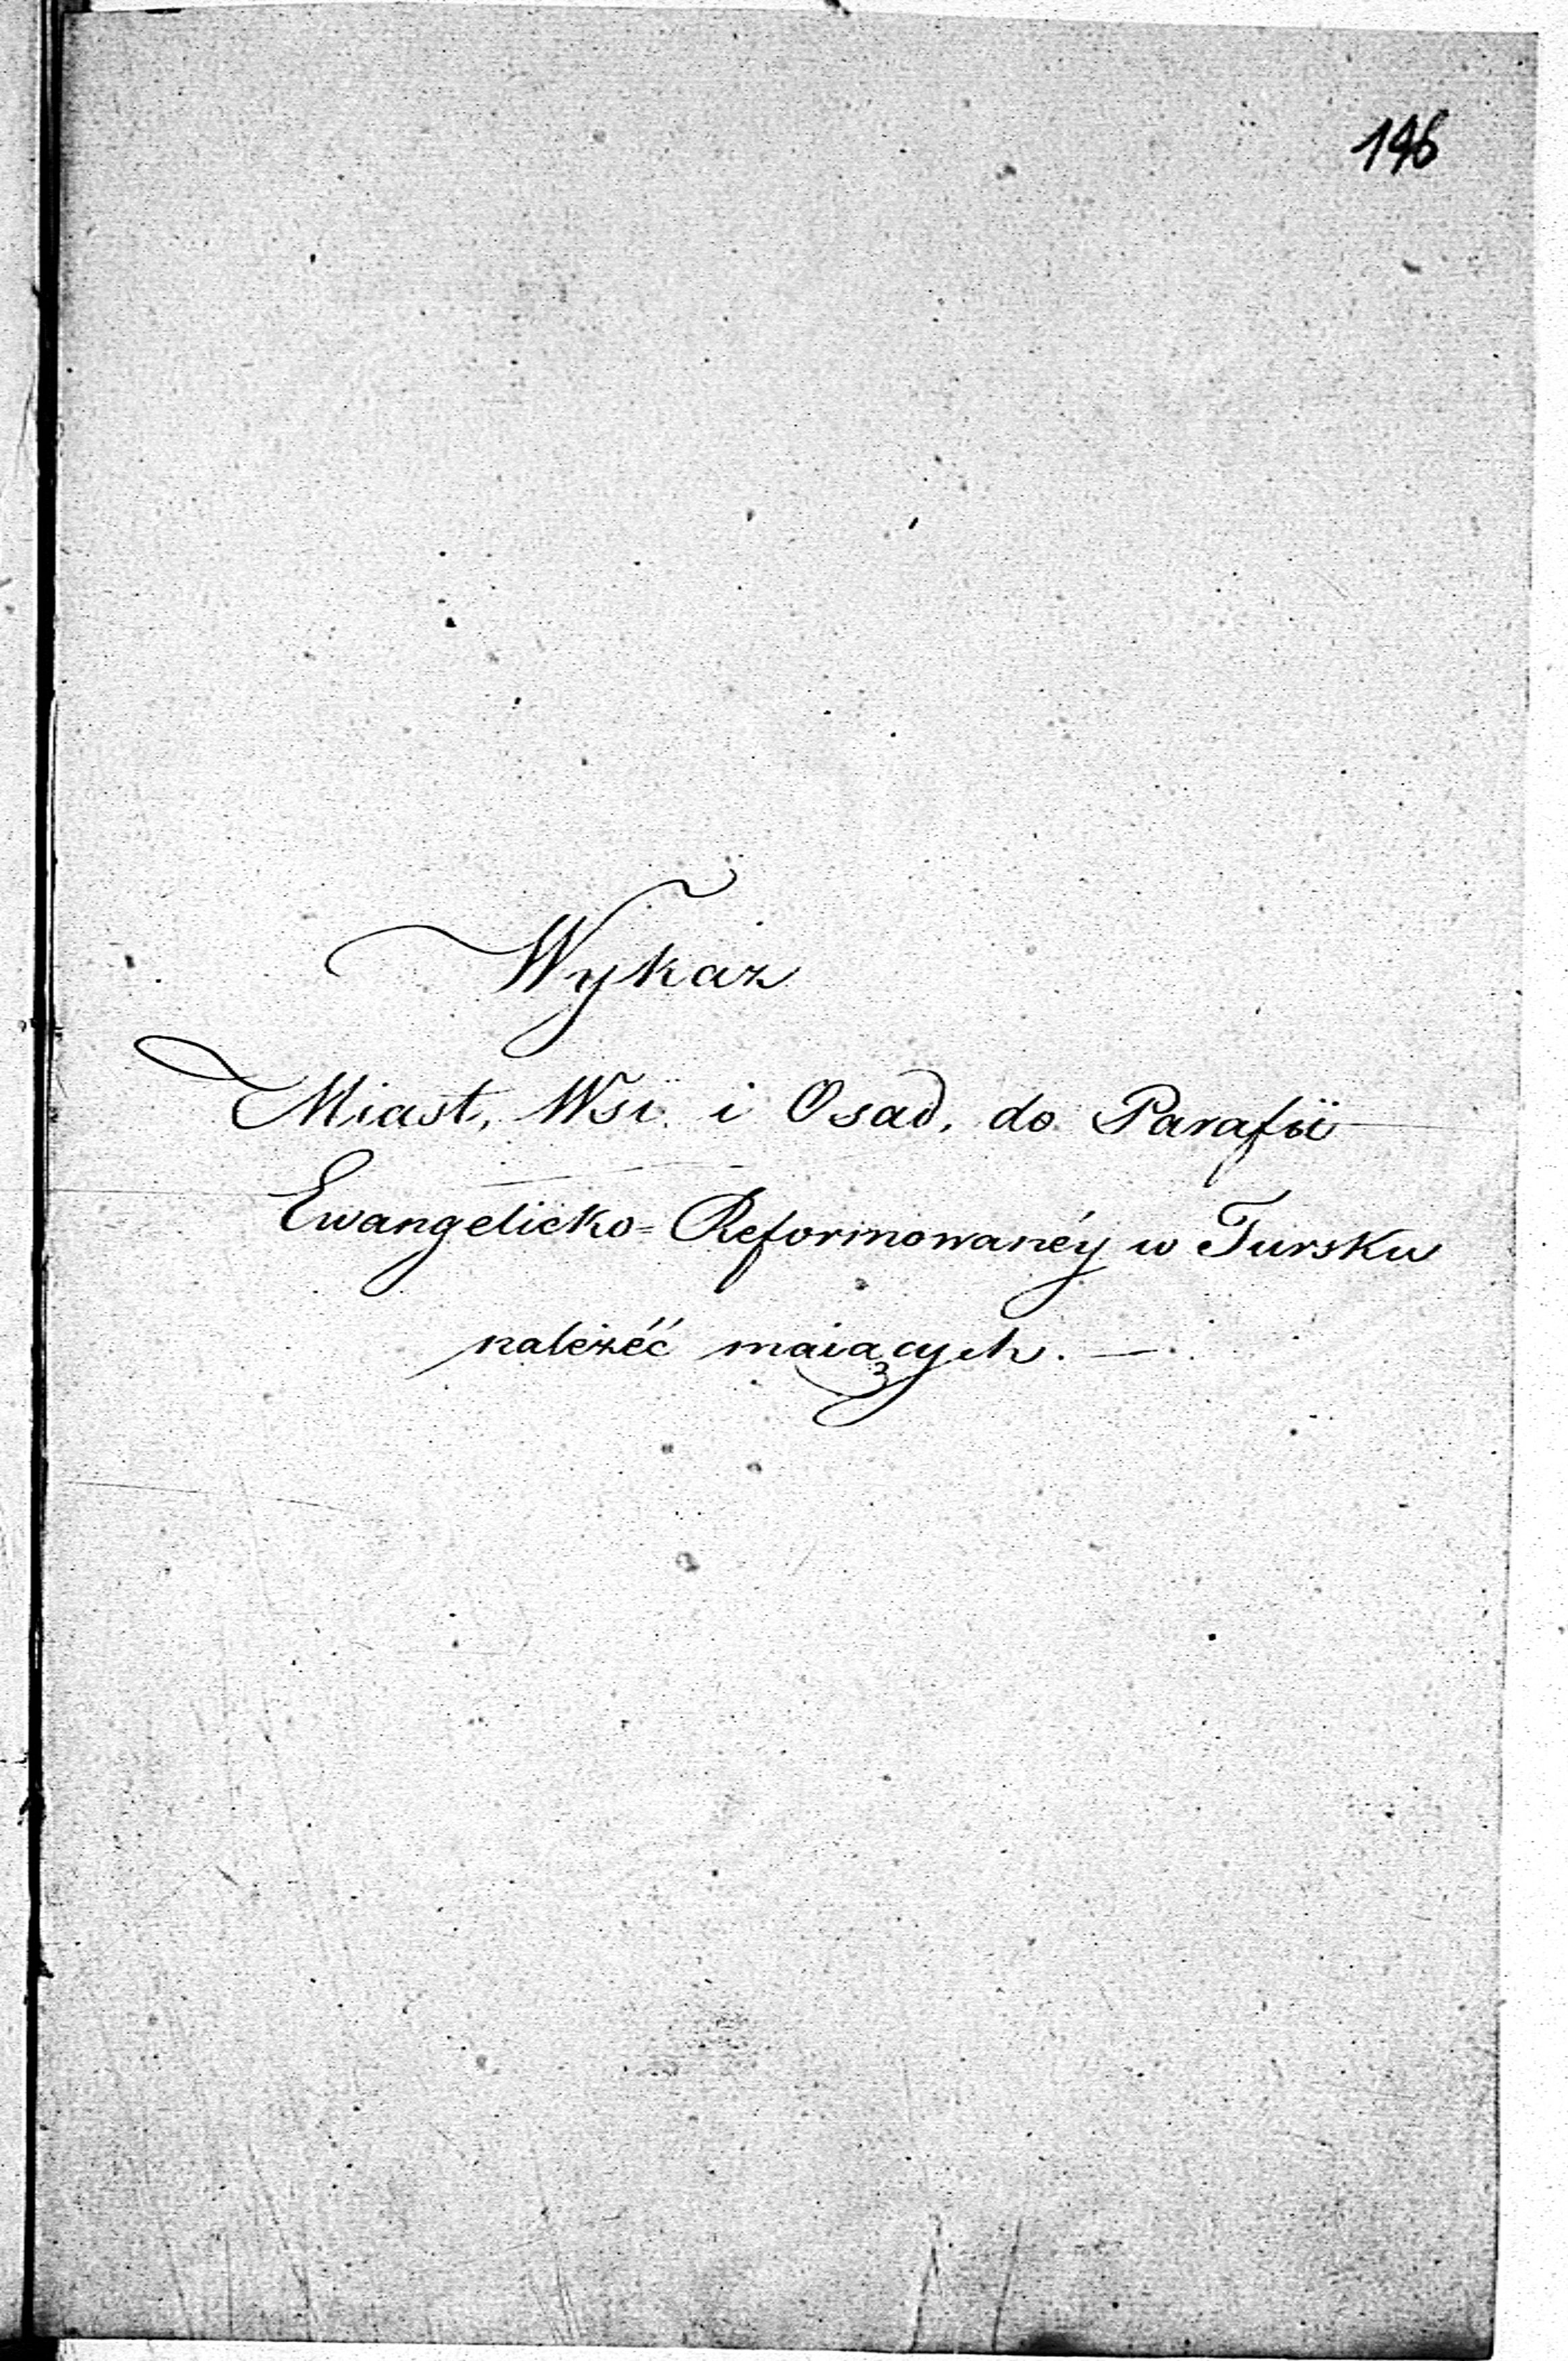 146
Wykaz
Miast, Wsi i Osad, do Parafii
Ewangelicko=Reformowanéy w Tursku
należéć maiących. —